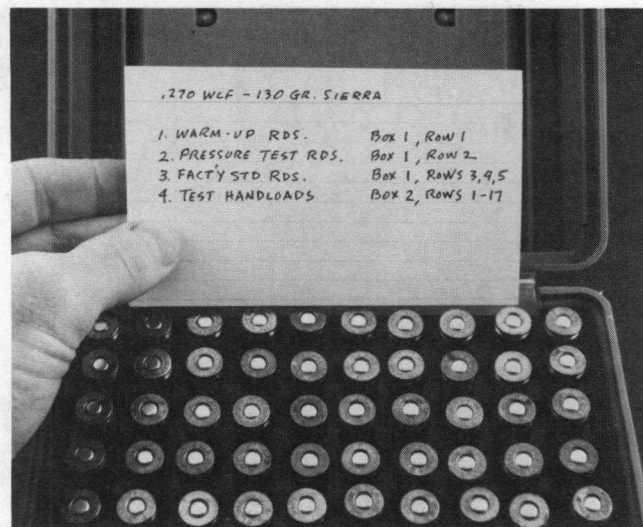 .270 WCF - 130 GR. SIERRA
1. WARM-UP RDS. BOX 1, ROW 1
2. PRESSURE TEST RDS. BOX 1, ROW 2
3. FACT'Y STD RDS. BOX 1, ROWS 3,4,5
4. TEST HANDLOADS BOX 2, ROWS 1-17